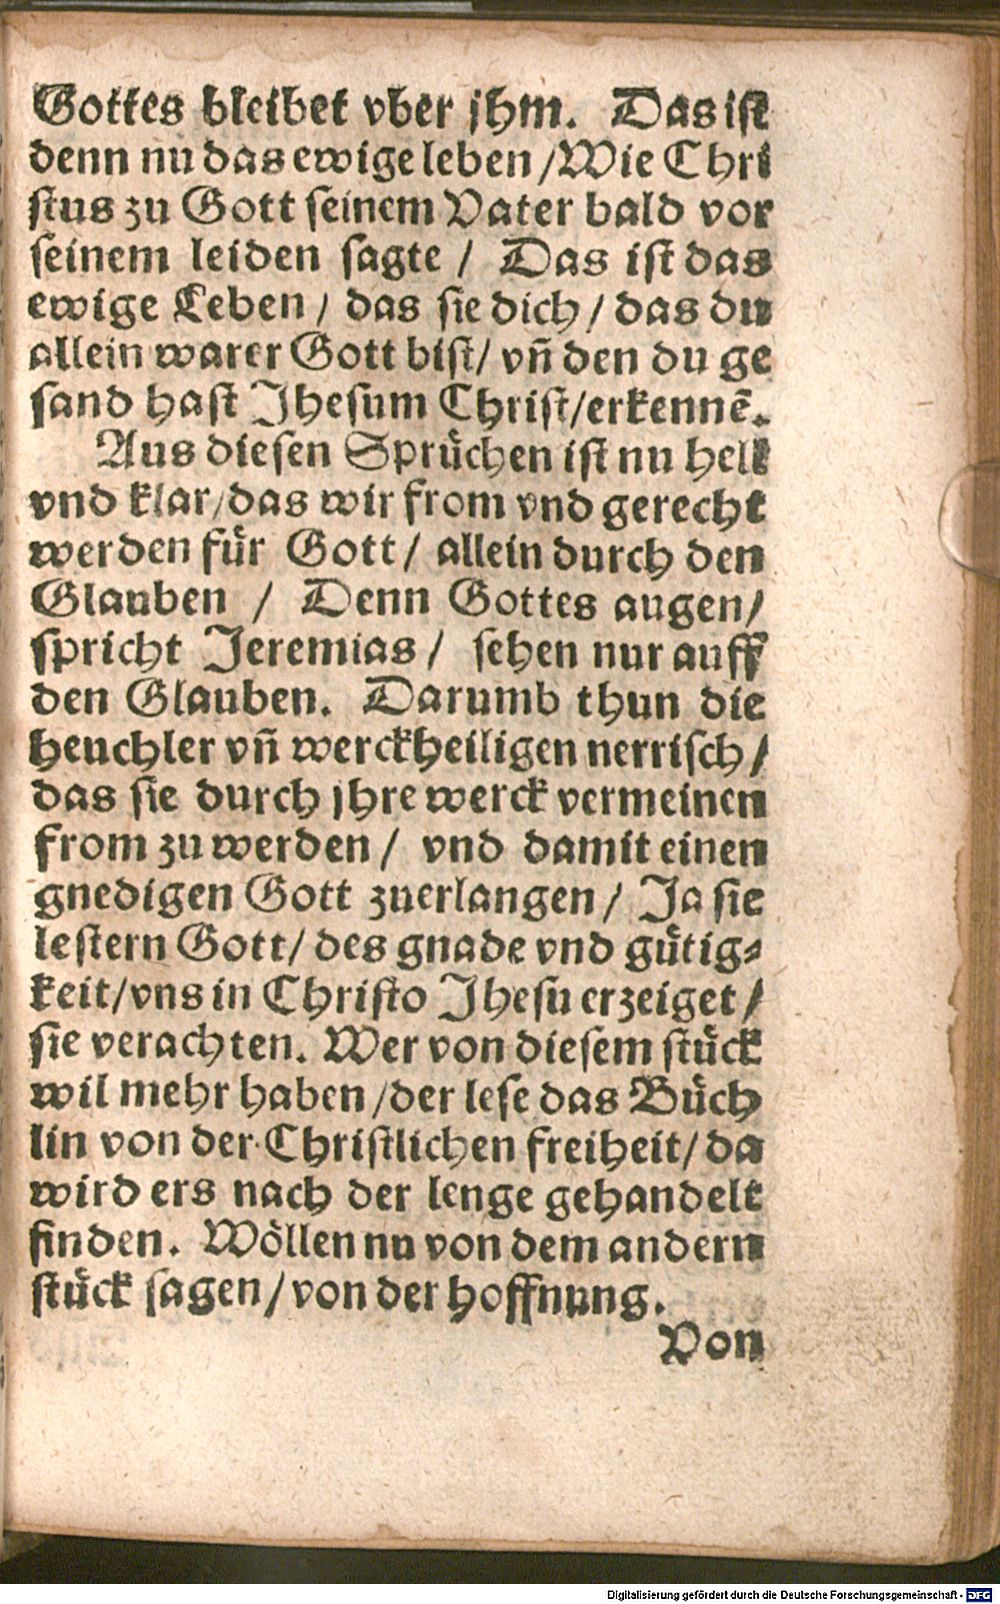 Gottes bleibet vber jhm. Das ist
denn nu das ewige leben /Wie Chri
stus zu Gott seinem Vater bald vor
seinem leiden sagte / Das ist das
ewige Leben / das sie dich / das du
allein warer Gott bist/ vñ den du ge
sand hast Jhesum Christ/erkennē.
Aus diesen Sprüchen ist nu hell
vnd klar/das wir from vnd gerecht
werden für Gott/ allein durch den
Glauben / Denn Gottes augen/
spricht Jeremias/ sehen nur auff
den Glauben. Darumb thun die
heuchler vñ werckheiligen nerrisch/
das sie durch jhre werck vermeinen
from zu werden / vnd damit einen
gnedigen Gott zuerlangen / Ja sie
lestern Gott/ des gnade vnd gütig⸗
keit/vns in Christo Jhesu erzeiget /
sie verachten. Wer von diesem stück
wil mehr haben /der lese das Büch
lin von der Christlichen freiheit/ da
wird ers nach der lenge gehandelt
finden. Wöllen nu von dem andern
stück sagen /von der hoffnung.
Von
Digitalisierung gefördert durch die Deutsche Forschungsgemeinschaft - DFG